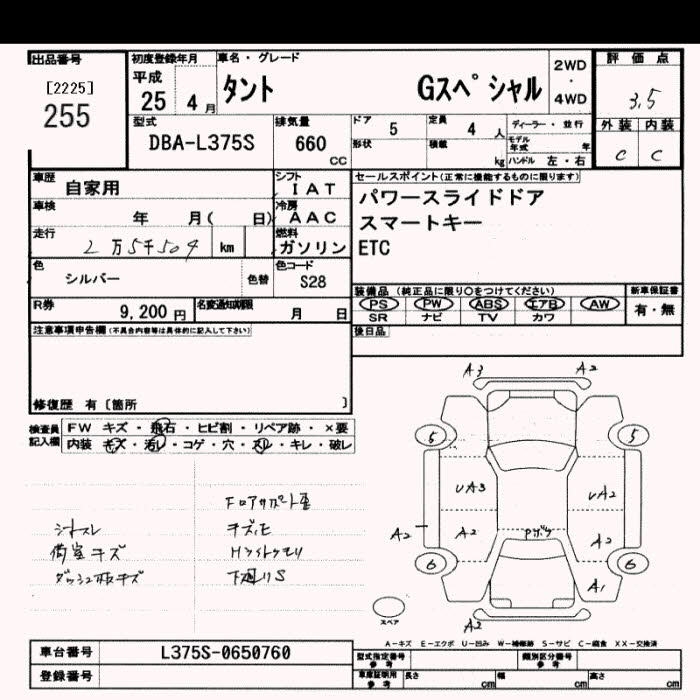 出品番号
[2225]
255
初度登録年月
平成
25 4月
車名・グレード
タント Gスペシャル
2WD
・
4WD
評価点
3.5
外装 内装
C C
型式
DBA-L375S
排気量
660
CC
ドア 5
定員 4 人
形状
積載 kg
ディーラー・並行
モデル年式 年
ハンドル 左・右
車歴
自家用
シフト
IAT
車検
年 月( 日)
冷房
AAC
走行
2万5千504 km
燃料
ガソリン
色
シルバー
色替
色コード
S28
R券
9,200円
名変通知期限
月 日
セールスポイント(正常に機能するものに限ります)
パワースライドドア
スマートキー
ETC
装備品(純正品に限り○をつけてください)
PS PW ABS エアB AW
SR ナビ TV カワ
新車保証書
有・無
後日品
注意事項申告欄(不具合内容等は具体的に記入して下さい)
修復歴 有〔箇所 〕
検査員
記入欄
FW キズ・飛石・ヒビ割・リペア跡・×要
内装 キズ・汚レ・コゲ・穴・スレ・キレ・破レ
シートスレ
荷室キズ
ダッシュ板キズ
キズ,E
下廻りS
A3 A2
5 5
UA3 UA2
A2 A2 A2
6 6
A1
A2
スペア
A-キズ E-エクボ U-凹み W-補修跡 S-サビ C-腐食 XX-交換済
車台番号
L375S-0650760
登録番号
型式指定番号
参考
類別区分番号
参考
車庫証明用
参考
長さ cm
幅 cm
高さ cm